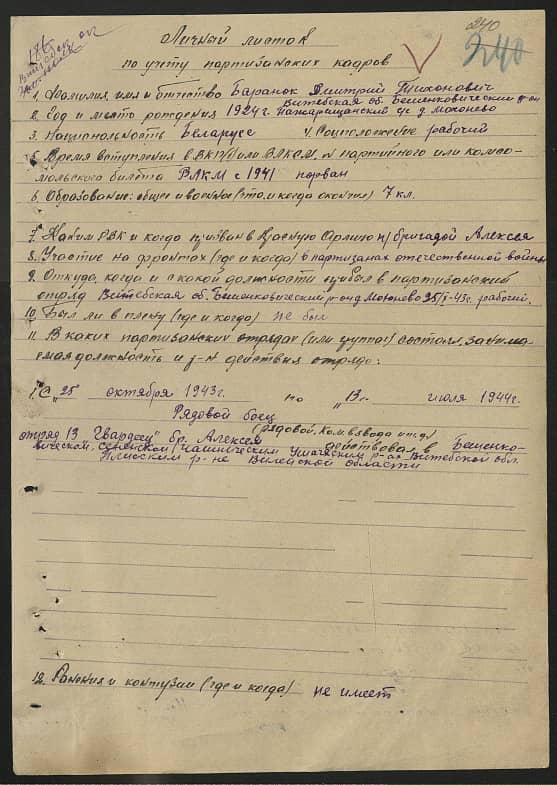 240
240
Личный листок
по учету партизанских кадров
1. Фамилия, имя и отчество Баранок Дмитрий Тихонович
Витебская об. Бешенковический р-он
2. Год и место рождения 1924 г. Пажарищанский с/с д. Мохонево
3. Национальность Беларусс 4. Соцположение рабочий
5. Время вступления в ВКП/б/ или ВЛКСМ, № партийного или комсо-
мольского билета ВЛКМ с 1941 порван
6. Образование: общее и военное (что и когда окончил) 7 кл.
7. Каким РВК и когда призван в Красную Армию п/бригадой Алексея
8. Участие на фронтах (где и когда) в партизанах отечественной войны
9. Откуда, когда и с какой должности прибыл в партизанский
отряд Витебская об. Бешенковический р-он д Мохонево 25/X-43г. рабочий.
10. Был ли в плену (где и когда) не был
11. В каких партизанских отрядах (или группах) состоял, занима-
емая должность и р-н действия отряда:
1. С "25 октября 1943г. по "13" июля 1944г.
Рядовой боец
(рядовой, ком. взвода и т.д.)
отряд 13 "Гвардеец" бр. Алексея действовал в Бешенко-
вическом, Сенненском Чашническим Ушачским р-ах Витебской обл.
Плисским р-не Вилейской области
12. Ранения и контузии (где и когда) не имеет